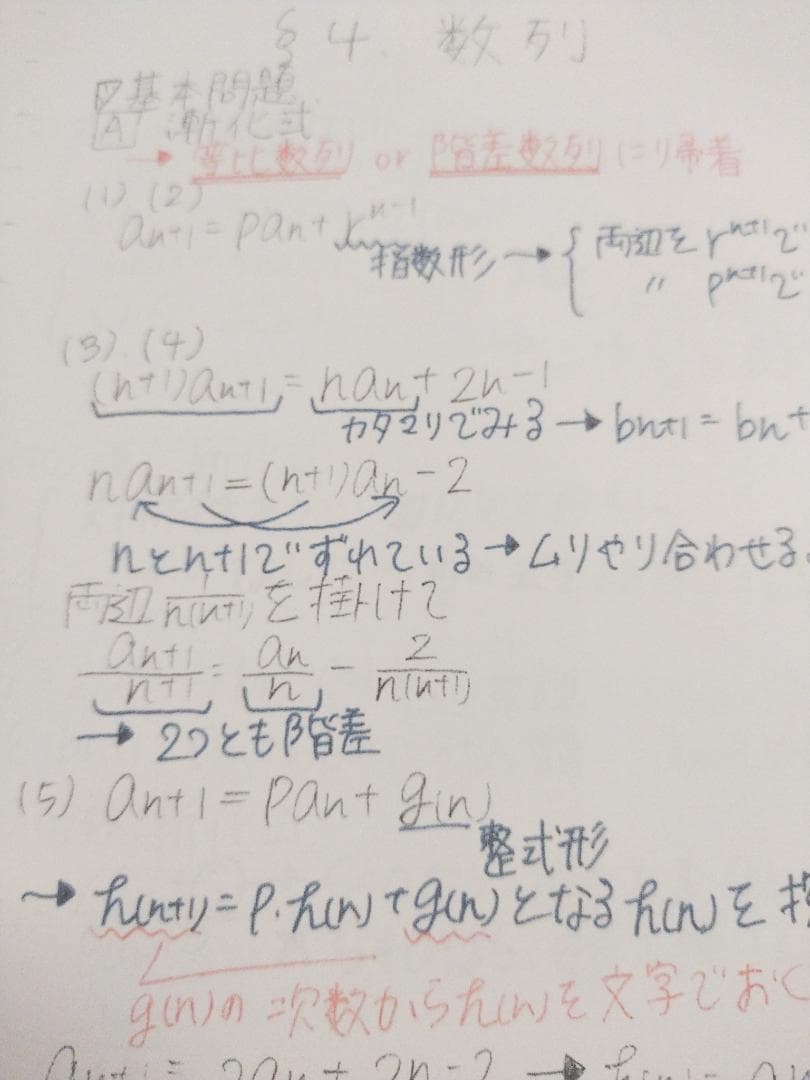 §4. 数列
基本問題
A 漸化式
→ 等比数列 or 階差数列 に帰着
(1).(2)
an+1 = pan + r^n-1
指数形 → { 両辺を r^n+1で
〃 p^n+1で
(3).(4)
(n+1)an+1 = nan + 2n-1
カタマリでみる → bn+1 = bn +
nan+1 = (n+1)an - 2
nとn+1で ずれている → ムリやり合わせる。
両辺 1/n(n+1) を掛けて
an+1/n+1 = an/n - 2/n(n+1)
→ 2つとも階差
(5) an+1 = pan + g(n)
整式形
→ h(n+1) = p・h(n) + g(n) となる h(n) を
g(n)の次数からh(n)を文字でおく
an+1 = 2an + 2n-2 →